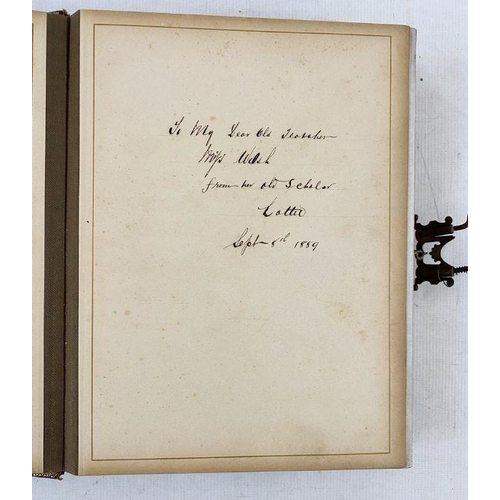 To My Dear Old Teacher
Miss Walsh
from her old Scholar
Lottie
Sept 8th 1889